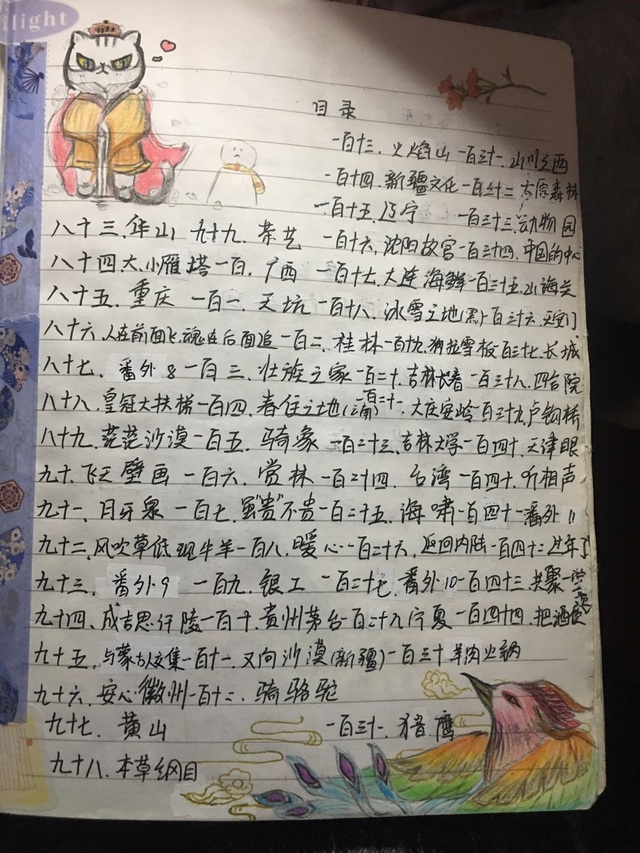 ilight
目录
一百十三、火焰山 一百三十一、山川
一百十四、新疆文化 一百三十二、森林
一百十五、辽宁 一百三十三、动物园
八十三、华山 九十九、茶艺 一百十六、沈阳故宫 一百三十四、中国的中心
八十四、大、小雁塔 一百、广西 一百十七、大连海鲜 一百三十五、山海关
八十五、重庆 一百一、天坑 一百十八、冰雪之地(黑) 一百三十六、天安门
八十六、人在前面飞,魂在后面追 一百二、桂林 一百十九、狗拉雪橇 一百三十七、长城
八十七、番外8 一百三、壮族之家 一百二十、吉林长春 一百三十八、四合院
八十八、皇冠大扶梯 一百四、春住之地(云南) 一百二十一、大庆安岭 一百三十九、卢钩桥
八十九、茫茫沙漠 一百五、骑象 一百二十三、吉林大学 一百四十、天津眼
九十、飞天壁画 一百六、赏林 一百二十四、台湾 一百四十、听相声
九十一、月牙泉 一百七、虽“贵”不贵 一百二十五、海啸 一百四十一、番外11
九十二、风吹草低现牛羊 一百八、暖心 一百二十六、返回内陆 一百四十二、过年了
九十三、番外9 一百九、银工 一百二十七、番外10 一百四十三、共聚一堂
九十四、成吉思汗陵 一百十、贵州茅台 一百二十八、宁夏 一百四十四、把酒
九十五、与蒙古人交集 一百十一、又向沙漠(新疆) 一百三十、羊肉火锅
九十六、安心徽州 一百十二、骑骆驼
九十七、黄山 一百三十一、猎鹰
九十八、本草纲目